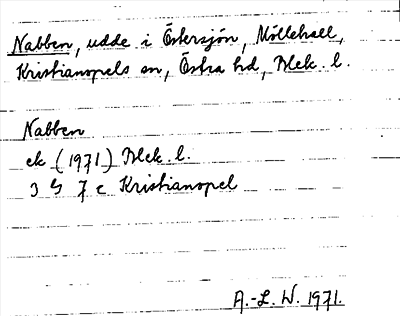 Nabben, udde i Östersjön, Möllehall,
Kristianopels sn, Östra hd, Blek. l.
Nabben
ek (1971) Blek. l.
3 G 7 c Kristianopel
A.-L. W. 1971.